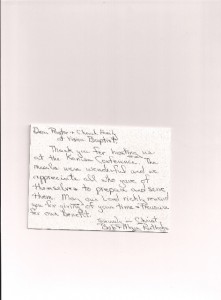 Dear Pastor & Church Family
at Baptist,
Thank you for hosting us
at the Kansas Conference. The
meals were wonderful and we
appreciate all who gave of
themselves to prepare and serve
them. May our Lord richly reward
you for giving of your time &
for our benefit.
Sincerely in Christ,